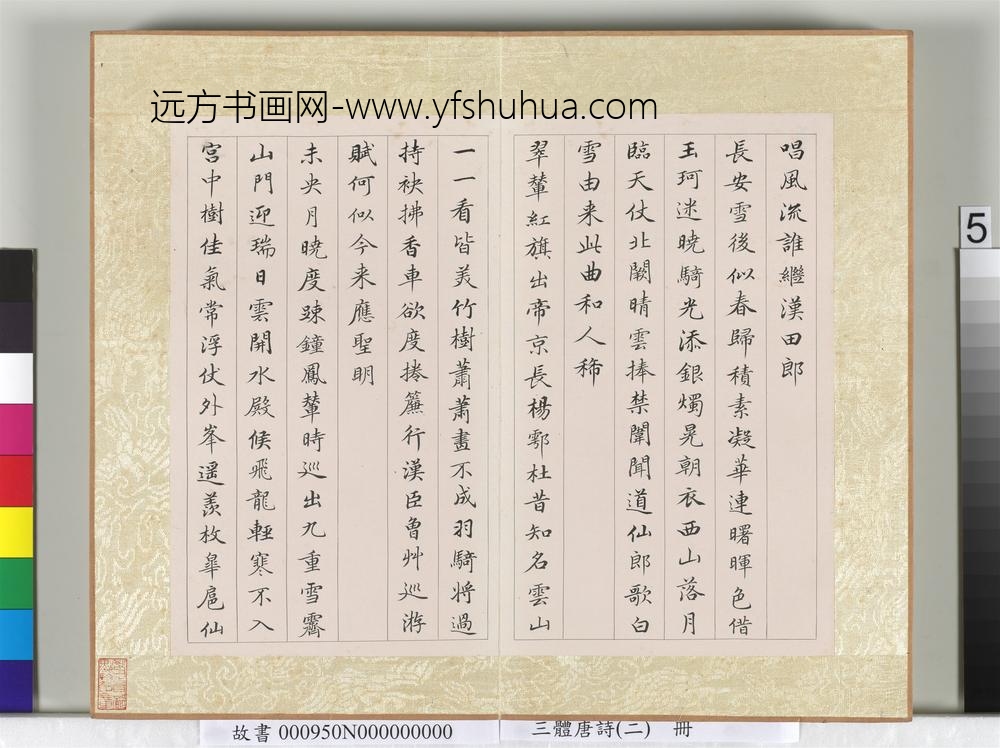 远方书画网-www.yfshuhua.com
唱風流誰繼漢田郎
長安雪後似春歸積素凝華連曙暉色借
玉珂迷曉騎光添銀燭晃朝衣西山落月
臨天仗北闕晴雲捧禁闈聞道仙郎歌白
雪由来此曲和人稀
翠輦紅旗出帝京長楊鄠杜昔知名雲山
一一看皆羙竹樹蕭蕭畫不成羽騎將過
持袂拂香車欲度捲簾行漢臣曾艸巡游
賦何似今来應聖眀
未央月曉度疎鐘鳳輦時巡出九重雪霽
山門迎瑞日雲開水殿候飛龍輕寒不入
宮中樹佳氣常浮仗外峯遥羨枚皋扈仙
5
故書 000950N000000000
三體唐詩(二) 冊